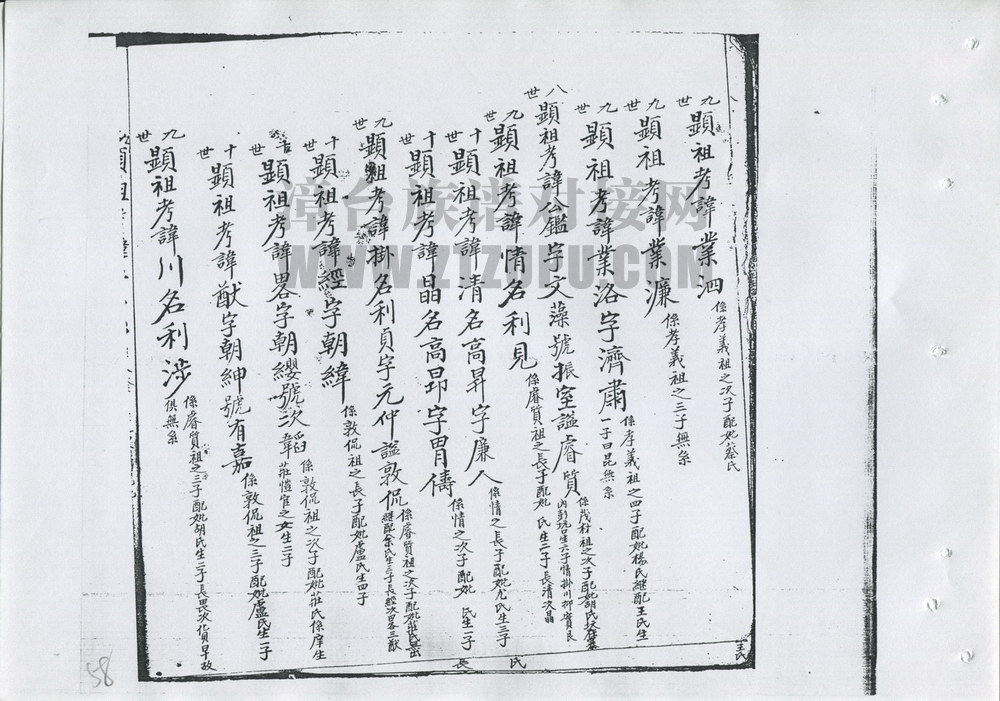 九世 顯祖考諱業泗 係孝義祖之次子配妣蔡氏
九世 顯祖考諱業濂 係孝義祖之三子無系
九世 顯祖考諱業洛字濟肅 係孝義祖之四子配妣楊氏継配王氏生一子曰昆無系
八世 顯祖考諱公鑑字文藻號振室謚睿質 係茂村祖之次子配妣胡氏 生六子情掛川
九世 顯祖考諱情名利見 係睿質祖之長子配妣 氏生二子長清次晶
十世 顯祖考諱清名高昇字廉人 係情之長子配妣尤氏生三子
十世 顯祖考諱晶名高昂字胃儔 係情之次子配妣 氏生一子
九世 顯祖考諱掛名利貞字元仲謚敦侃 係睿質祖之次子配妣莊氏 継配余氏生三子長經次畧三猷
十世 顯祖考諱經字朝緯 係敦侃祖之長子配妣盧氏生四子
十世 顯祖考諱畧字朝纓號次韜 係敦侃祖之次子配妣莊氏係庠生莊愷官之女生二子
十世 顯祖考諱猷字朝紳號有嘉 係敦侃祖之三子配妣盧氏生一子
九世 顯祖考諱川名利涉 係睿質祖之三子配妣胡氏生二子長畏次 早故俱無系
長
氏
王氏
58
谱台族谱对接网
WWW.ZTZUPU.COM